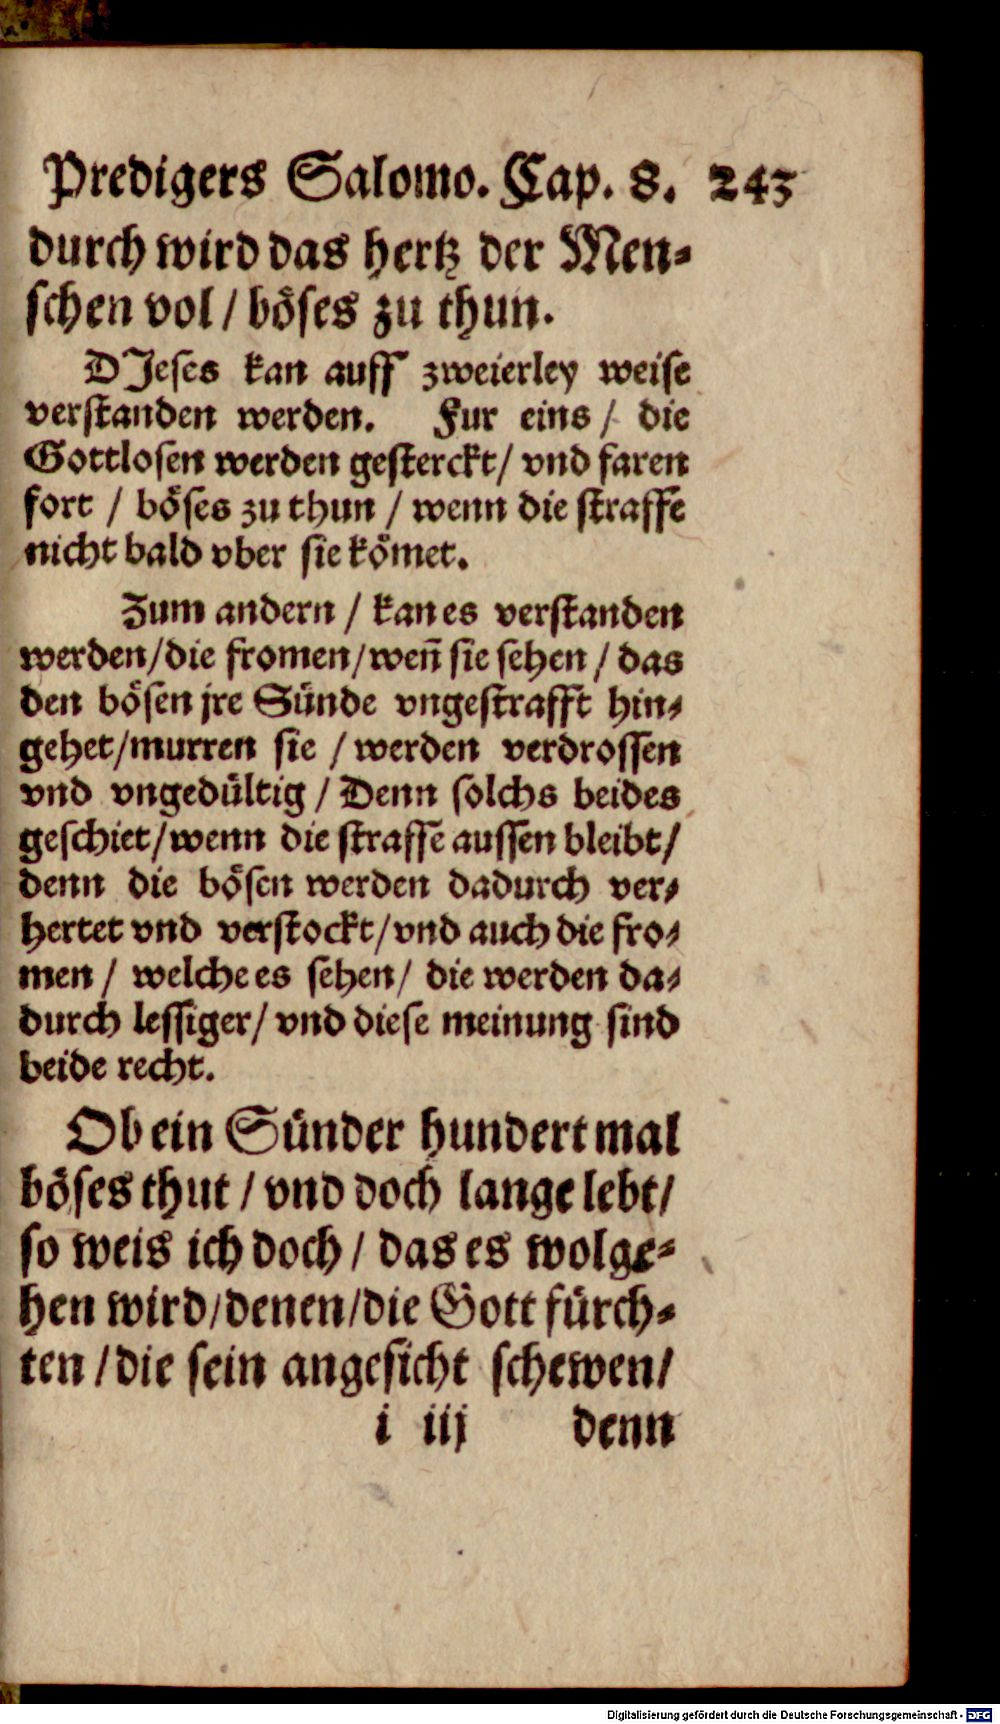 Predigers Salomo. Cap. 8. 243
durch wird das hertz der Men⸗
schen vol / böses zu thun.
DJeses kan auff zweierley weise
verstanden werden. Fur eins / die
Gottlosen werden gesterckt / vnd faren
fort / böses zu thun / wenn die straffe
nicht bald vber sie kömet.
Zum andern / kan es verstanden
werden / die fromen / weñ sie sehen / das
den bösen jre Sünde vngestrafft hin⸗
gehet / murren sie / werden verdrossen
vnd vngedültig / Denn solchs beides
geschiet / wenn die straffe aussen bleibt /
denn die bösen werden dadurch ver⸗
hertet vnd verstockt / vnd auch die fro⸗
men / welche es sehen / die werden da⸗
durch lessiger / vnd diese meinung sind
beide recht.
Ob ein Sünder hundert mal
böses thut / vnd doch lange lebt /
so weis ich doch / das es wolge⸗
hen wird / denen / die Gott fürch⸗
ten / die sein angesicht schewen /
i iij denn
Digitalisierung gefördert durch die Deutsche Forschungsgemeinschaft - DFG